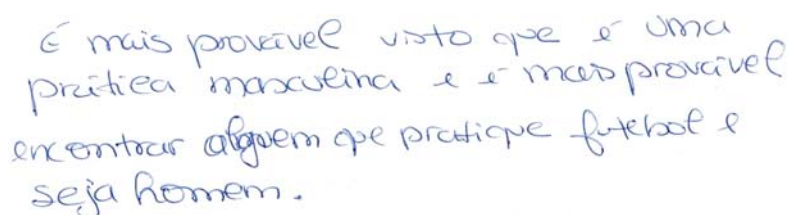 É mais provável visto que é uma
prática masculina e é mais provável
encontrar alguem que pratique futebol e
seja homem.